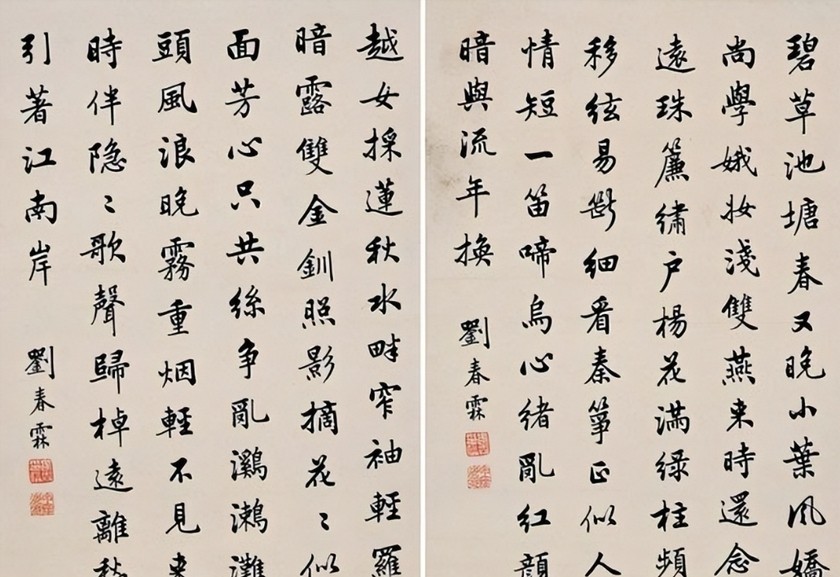 碧草池塘春又晚小葉风嬌
尚學娥妝淺雙燕来時還念
遠珠簾繡戶楊花滿绿柱頻
移絃易斷細看秦箏正似人
情短一笛啼烏心緒亂紅顏
暗與流年換
劉春霖
越女採蓮秋水畔窄袖輕羅
暗露雙金釧照影摘花〻似
面芳心只共絲争亂鸂鶒灘
頭風浪晚霧重烟輕不見来
時伴隐〻歌聲歸棹遠離愁
引著江南岸
劉春霖